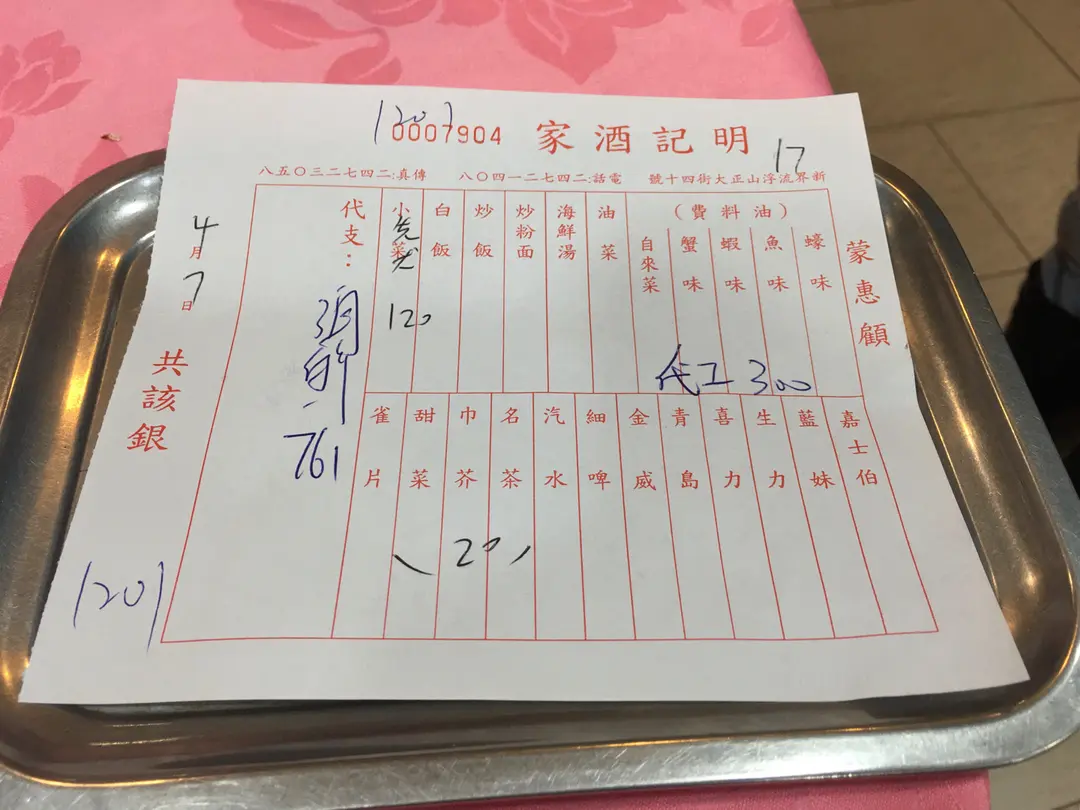 1201
0007904
明記酒家
17
新界流浮山正大街四十號 電話:二四七二一四〇八 傳真:二四七二三〇五八
蒙惠顧
(油料費)
蠔味
魚味
蝦味
蟹味
自來菜
代工 300
油菜
海鮮湯
炒粉面
炒飯
白飯
小菜
120
代支:
761
嘉士伯
藍妹
生力
喜力
青島
金威
細啤
汽水
名茶
巾芥
甜菜
雀片
20
4月7日
共該銀
1201